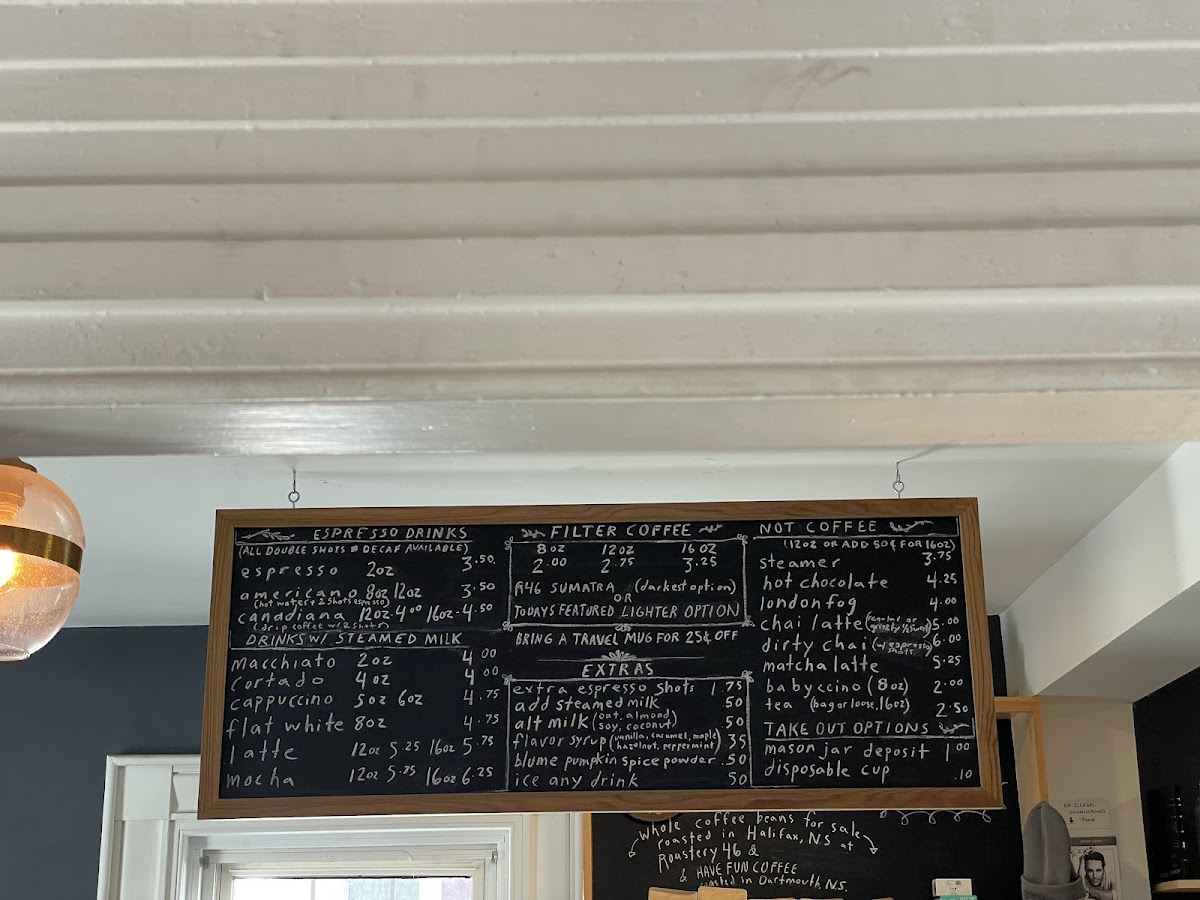 ESPRESSO DRINKS
(ALL DOUBLE SHOTS & DECAF AVAILABLE)
espresso 2oz 3.50
americano 8oz 12oz 3.50
(hot water + 2 shots espresso)
canadiana 12oz-4.00 16oz-4.50
(drip coffee w/ 2 shots)
DRINKS W/ STEAMED MILK
macchiato 2oz 4.00
cortado 4oz 4.00
cappuccino 5oz 6oz 4.75
flat white 8oz 4.75
latte 12oz 5.25 16oz 5.75
mocha 12oz 5.75 16oz 6.25
FILTER COFFEE
8oz 12oz 16oz
2.00 2.75 3.25
R46 SUMATRA (darkest option)
OR
TODAYS FEATURED LIGHTER OPTION
BRING A TRAVEL MUG FOR 25¢ OFF
EXTRAS
extra espresso shots 1.75
add steamed milk .50
alt milk (oat, almond, soy, coconut) .50
flavor syrup (vanilla, caramel, maple
hazelnut, peppermint) 35
blume pumpkin spice powder .50
ice any drink 50
NOT COFFEE
(12oz OR ADD 50¢ FOR 16oz)
steamer 3.75
hot chocolate 4.25
london fog 4.00
chai latte (regular or 5.00
dirty chai (w/ espresso shots) 6.00
matcha latte 5.25
babyccino (8oz) 2.00
tea (bag or loose, 16oz) 2.50
TAKE OUT OPTIONS
mason jar deposit 1.00
disposable cup .10
whole coffee beans for sale
roasted in Halifax, N.S at
Roastery 46 &
& HAVE FUN COFFEE
roasted in Dartmouth, N.S.
NO ILLEGAL
DOWNLOADING